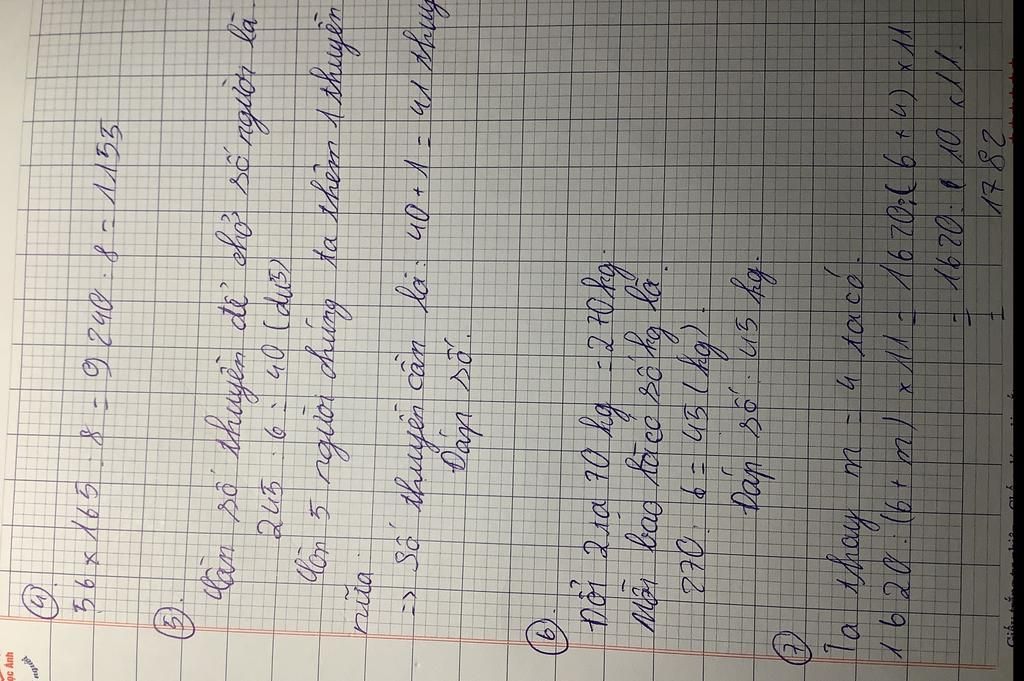 4
56 x 165 : 8 = 9 240 : 8 = 1155
5
Cần số thuyền để chở số người là
245 : 6 = 40 (dư 5)
Còn 5 người chúng ta thêm 1 thuyền
nữa.
=> Số thuyền cần là : 40 + 1 = 41
Đáp số.
6
Đổi 2 tạ 70 kg = 270 kg.
Mỗi bao có số kg là.
270 : 6 = 45 (kg).
Đáp số : 45 kg.
7
Ta thay m = 4 ta có.
1620 : (6 + m) x 11 = 1620 : (6 + 4) x 11
= 1620 : 10 x 11.
= 1782